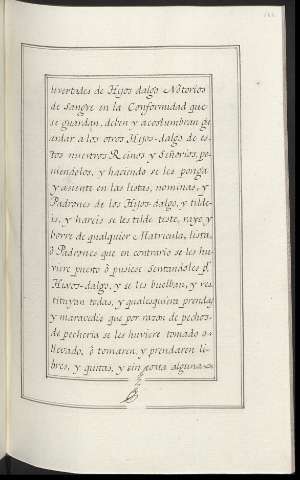 livertides de Hijos dalgo Notorios
de Sangre en la Conformidad que
se guardan, deben y acostumbran gu
ardar a los otros Hijos-dalgo de es-
tos nuestros Reinos y Señorios, po-
niendolos, y haciendo se les ponga
y asiente en las listas, nominas, y
Padrones de los Hijos-dalgo, y tilde-
is, y hareis se les tilde teste, raye y
borre de qualquier Matricula, lista,
ò Padrones que en contrario se les hu
viere puesto ò pusiese sentandoles pr
Hixos-dalgo, y se les buelban, y res
tituyan todas, y qualesquiera prendas
y maravedis que por razon de pechos-
de pecheria se les huviere tomado o-
llevado, ò tomaren, y prendaren li-
bres, y quitas, y sin costa alguna